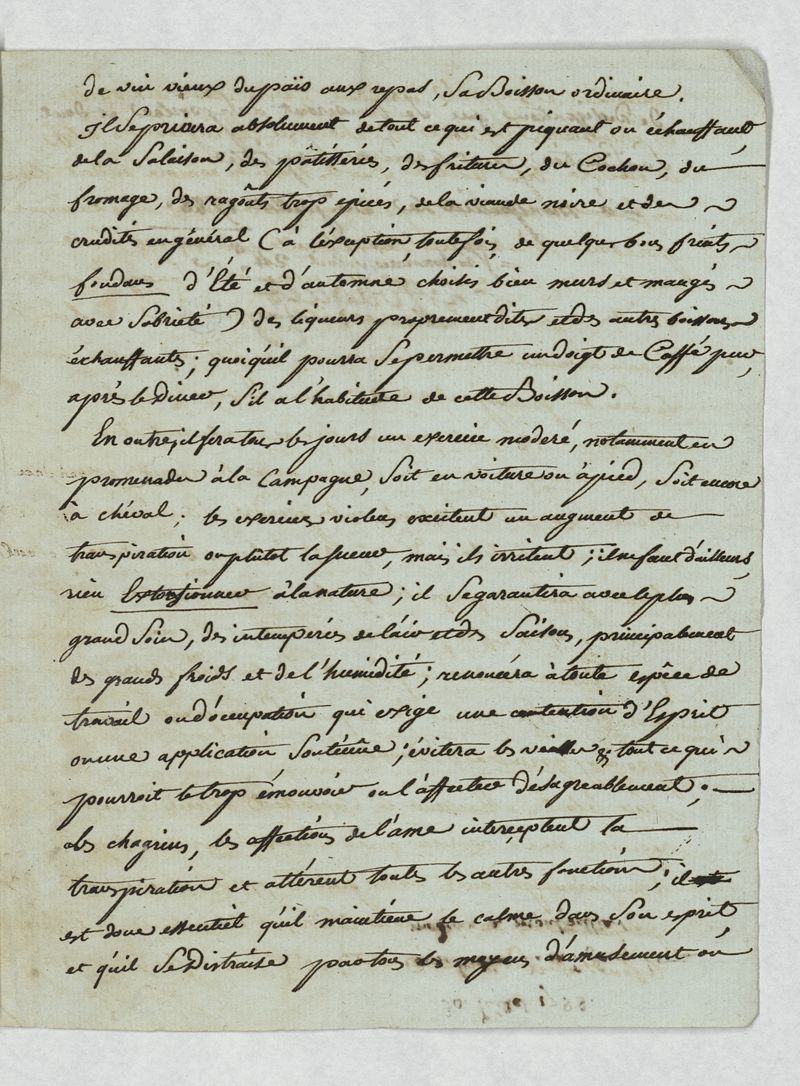 de vin vieux du païs aux repas, Sa Boisson ordinaire.
il Se privera absolument de tout ce qui est piquant ou échauffant,
de la Salaison, des pâtisseries, des fritures, du Cochon, du
fromage, des ragoûts trop épicés, de la viande noire et des
crudités en général (à l'éxception, toutefois, de quelques bons fruits
fondans d'Été et d'automne choisis bien murs et mangés
avec Sobrieté) des liqueurs proprement dites et des autres boissons
échauffantes; quoiqu'il pourra Se permettre un doigt de Caffé pur,
après le Diner, S'il a l'habitude de cette Boisson.
En outre, il fera tous les jours un exercice moderé, notamment en
promenades à la Campagne, Soit en voiture ou à pied, Soit encore
à chéval; les exercices violens excitent un augment de
transpiration ou plûtot la sueur, mais ils irritent; il ne faut d'ailleurs
rien Extorsionner à la nature; il Se garantira avec le plus
grand Soin, des intempéries de l'air et des Saisons, principalement
des grands froids et de l'humidité; renoncera à toute espêce de
travail ou d'occupation qui exige une contention d'Esprit
ou une application Soutenüe; évitera les veilles & tout ce qui
pourroit le trop émouvoir ou l'affecter désagreablement;
les chagrins, les affections de l'ame interceptent la
transpiration et altérent toutes les autres fonctions; il
est donc essentiel qu'il maintiene le calme dans Son esprit
et qu'il Se Distraise par tous les moyens d'amusement où